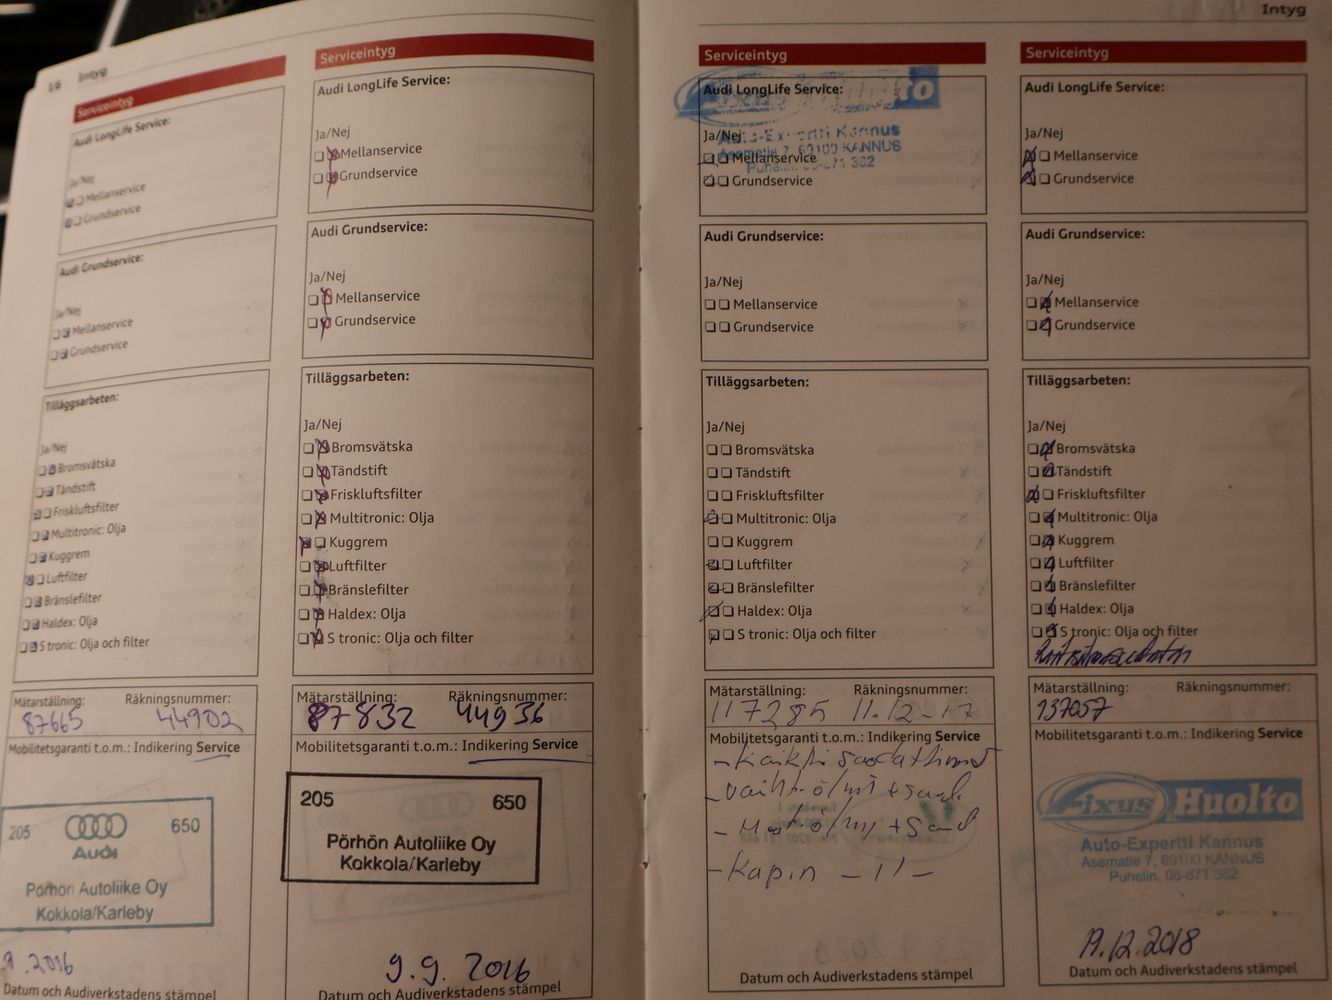 16 Intyg
Serviceintyg
Audi LongLife Service:
Ja/Nej
Mellanservice
Grundservice
Audi Grundservice:
Ja/Nej
Mellanservice
Grundservice
Tilläggsarbeten:
Ja/Nej
Bromsvätska
Tändstift
Friskluftsfilter
Multitronic: Olja
Kuggrem
Luftfilter
Bränslefilter
Haldex: Olja
S tronic: Olja och filter
Mätarställning: Räkningsnummer:
87665 44902
Mobilitetsgaranti t.o.m.: Indikering Service
205 650
Audi
Pörhön Autoliike Oy
Kokkola/Karleby
.2016
Datum och Audiverkstadens stämpel
Serviceintyg
Audi LongLife Service:
Ja/Nej
Mellanservice
Grundservice
Audi Grundservice:
Ja/Nej
Mellanservice
Grundservice
Tilläggsarbeten:
Ja/Nej
Bromsvätska
Tändstift
Friskluftsfilter
Multitronic: Olja
Kuggrem
Luftfilter
Bränslefilter
Haldex: Olja
S tronic: Olja och filter
Mätarställning: Räkningsnummer:
87832 44936
Mobilitetsgaranti t.o.m.: Indikering Service
205 650
Pörhön Autoliike Oy
Kokkola/Karleby
9.9. 2016
Datum och Audiverkstadens stämpel
Intyg
Serviceintyg
Audi LongLife Service:
Auto-Expertti Kannus
Ja/Nej
Asematie 7, 69100 KANNUS
Mellanservice
Puhelin. 06-871 362
Grundservice
Audi Grundservice:
Ja/Nej
Mellanservice
Grundservice
Tilläggsarbeten:
Ja/Nej
Bromsvätska
Tändstift
Friskluftsfilter
Multitronic: Olja
Kuggrem
Luftfilter
Bränslefilter
Haldex: Olja
S tronic: Olja och filter
Mätarställning: Räkningsnummer:
117285 11.12-17
Mobilitetsgaranti t.o.m.: Indikering Service
- Kaikki suodattimet
- +
- +
- Kapin - 11 -
Datum och Audiverkstadens stämpel
Serviceintyg
Audi LongLife Service:
Ja/Nej
Mellanservice
Grundservice
Audi Grundservice:
Ja/Nej
Mellanservice
Grundservice
Tilläggsarbeten:
Ja/Nej
Bromsvätska
Tändstift
Friskluftsfilter
Multitronic: Olja
Kuggrem
Luftfilter
Bränslefilter
Haldex: Olja
S tronic: Olja och filter
Mätarställning: Räkningsnummer:
137057
Mobilitetsgaranti t.o.m.: Indikering Service
Fixus Huolto
Auto-Expertti Kannus
Asematie 7, 69100 KANNUS
Puhelin. 06-871 362
19.12.2018
Datum och Audiverkstadens stämpel